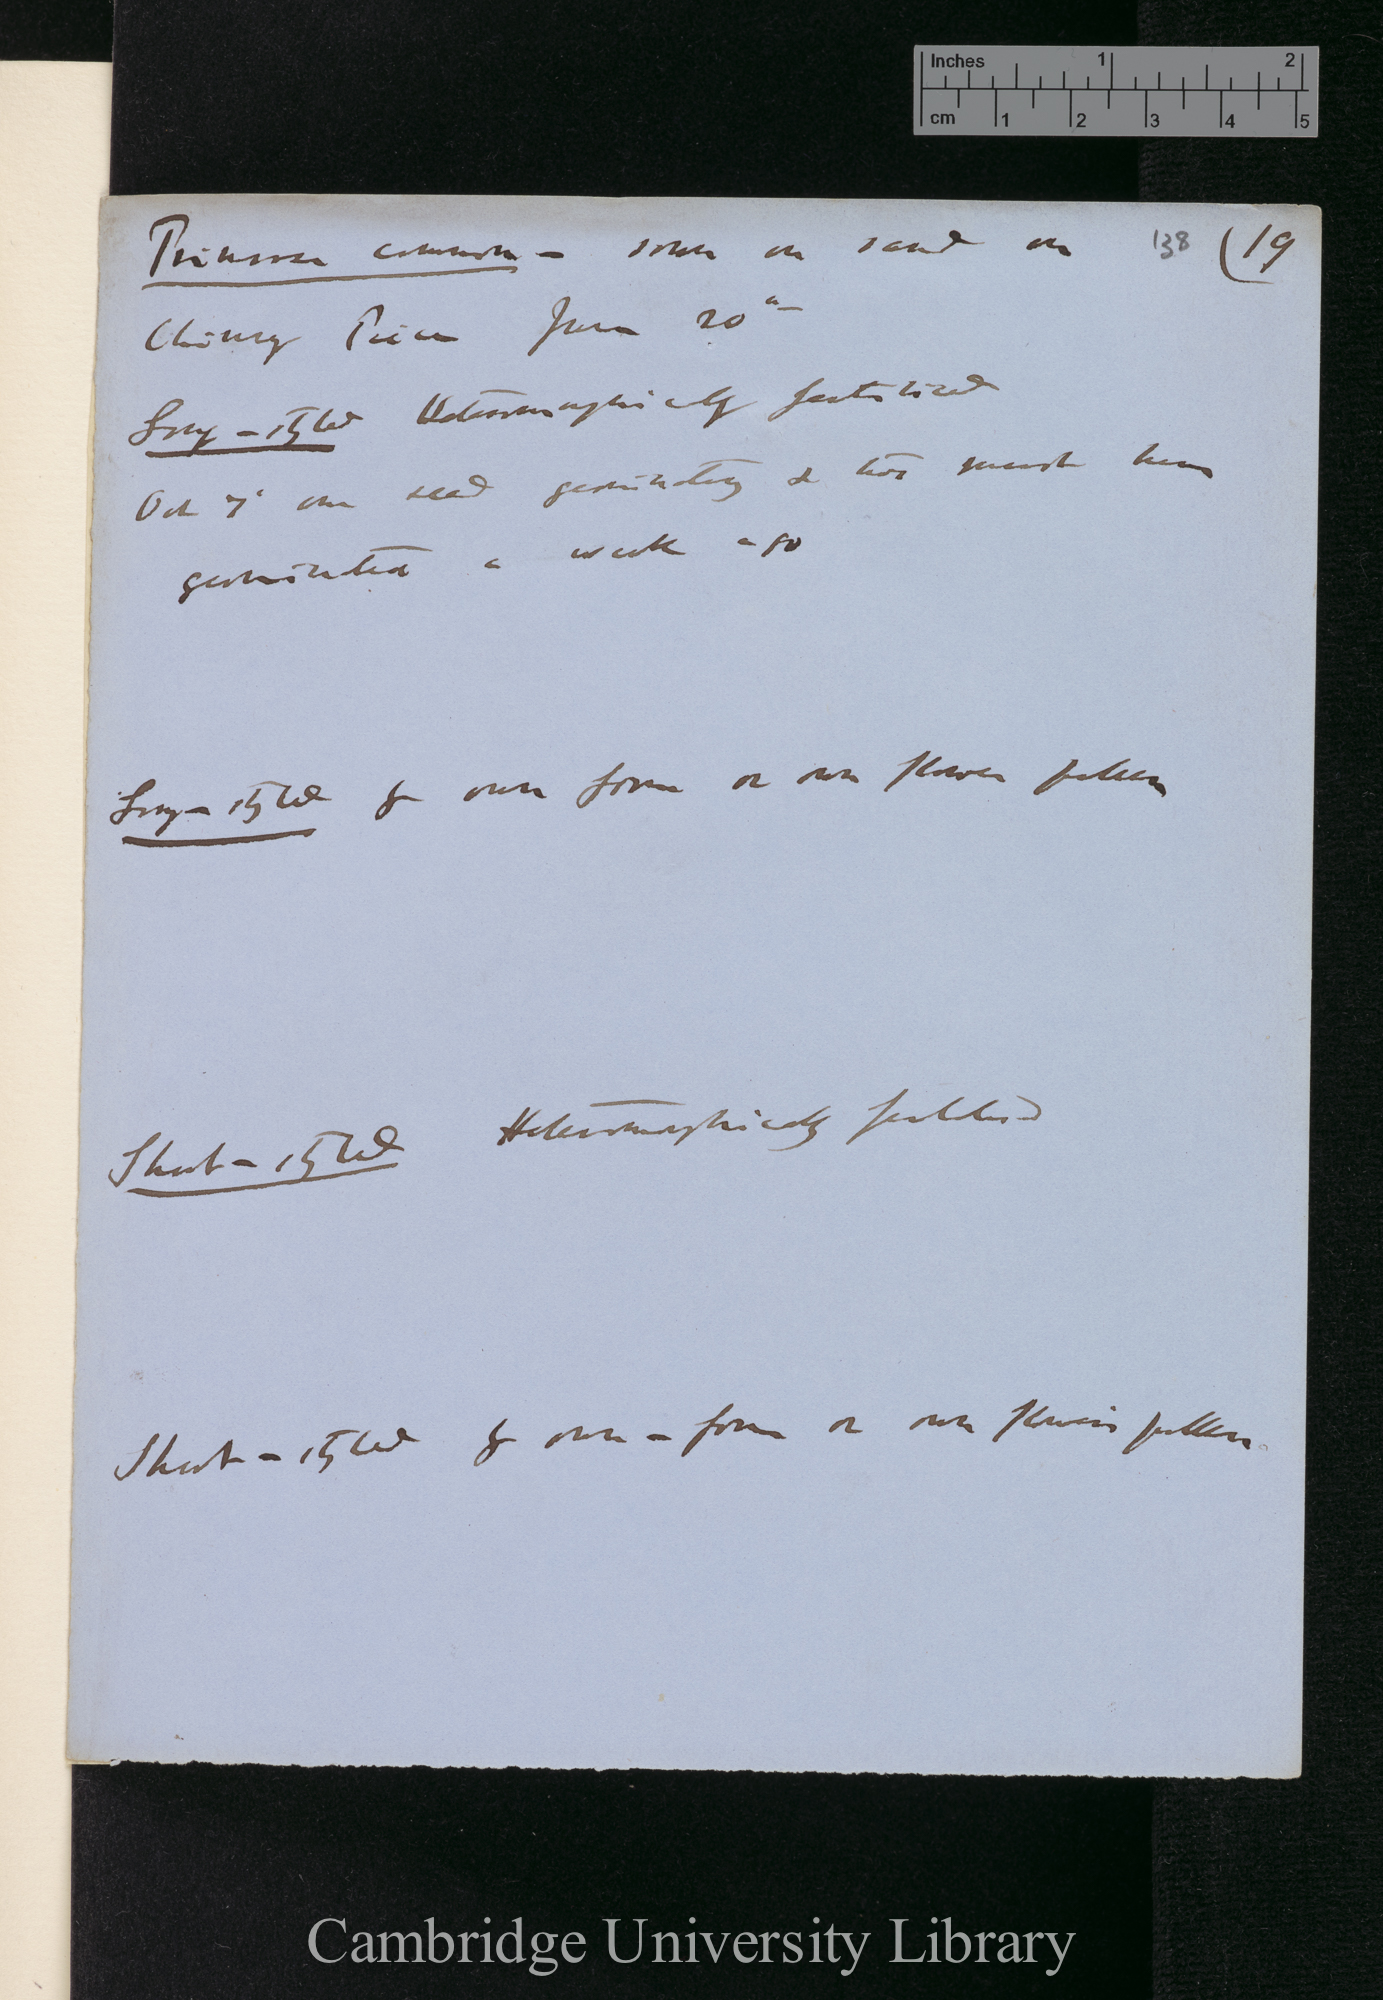 Inches 1 2
cm 1 2 3 4 5
138 (19
Primrose common — sown on sand on
Chimney Piece June 20th
Long-styled Heteromorphically fertilised
Oct 7th one seed germinating & this must have
germinated a week ago
Long-styled by own form or own flower pollen
Short-styled Heteromorphically fertilised
Short-styled by own-form or own flower's pollen.
Cambridge University Library